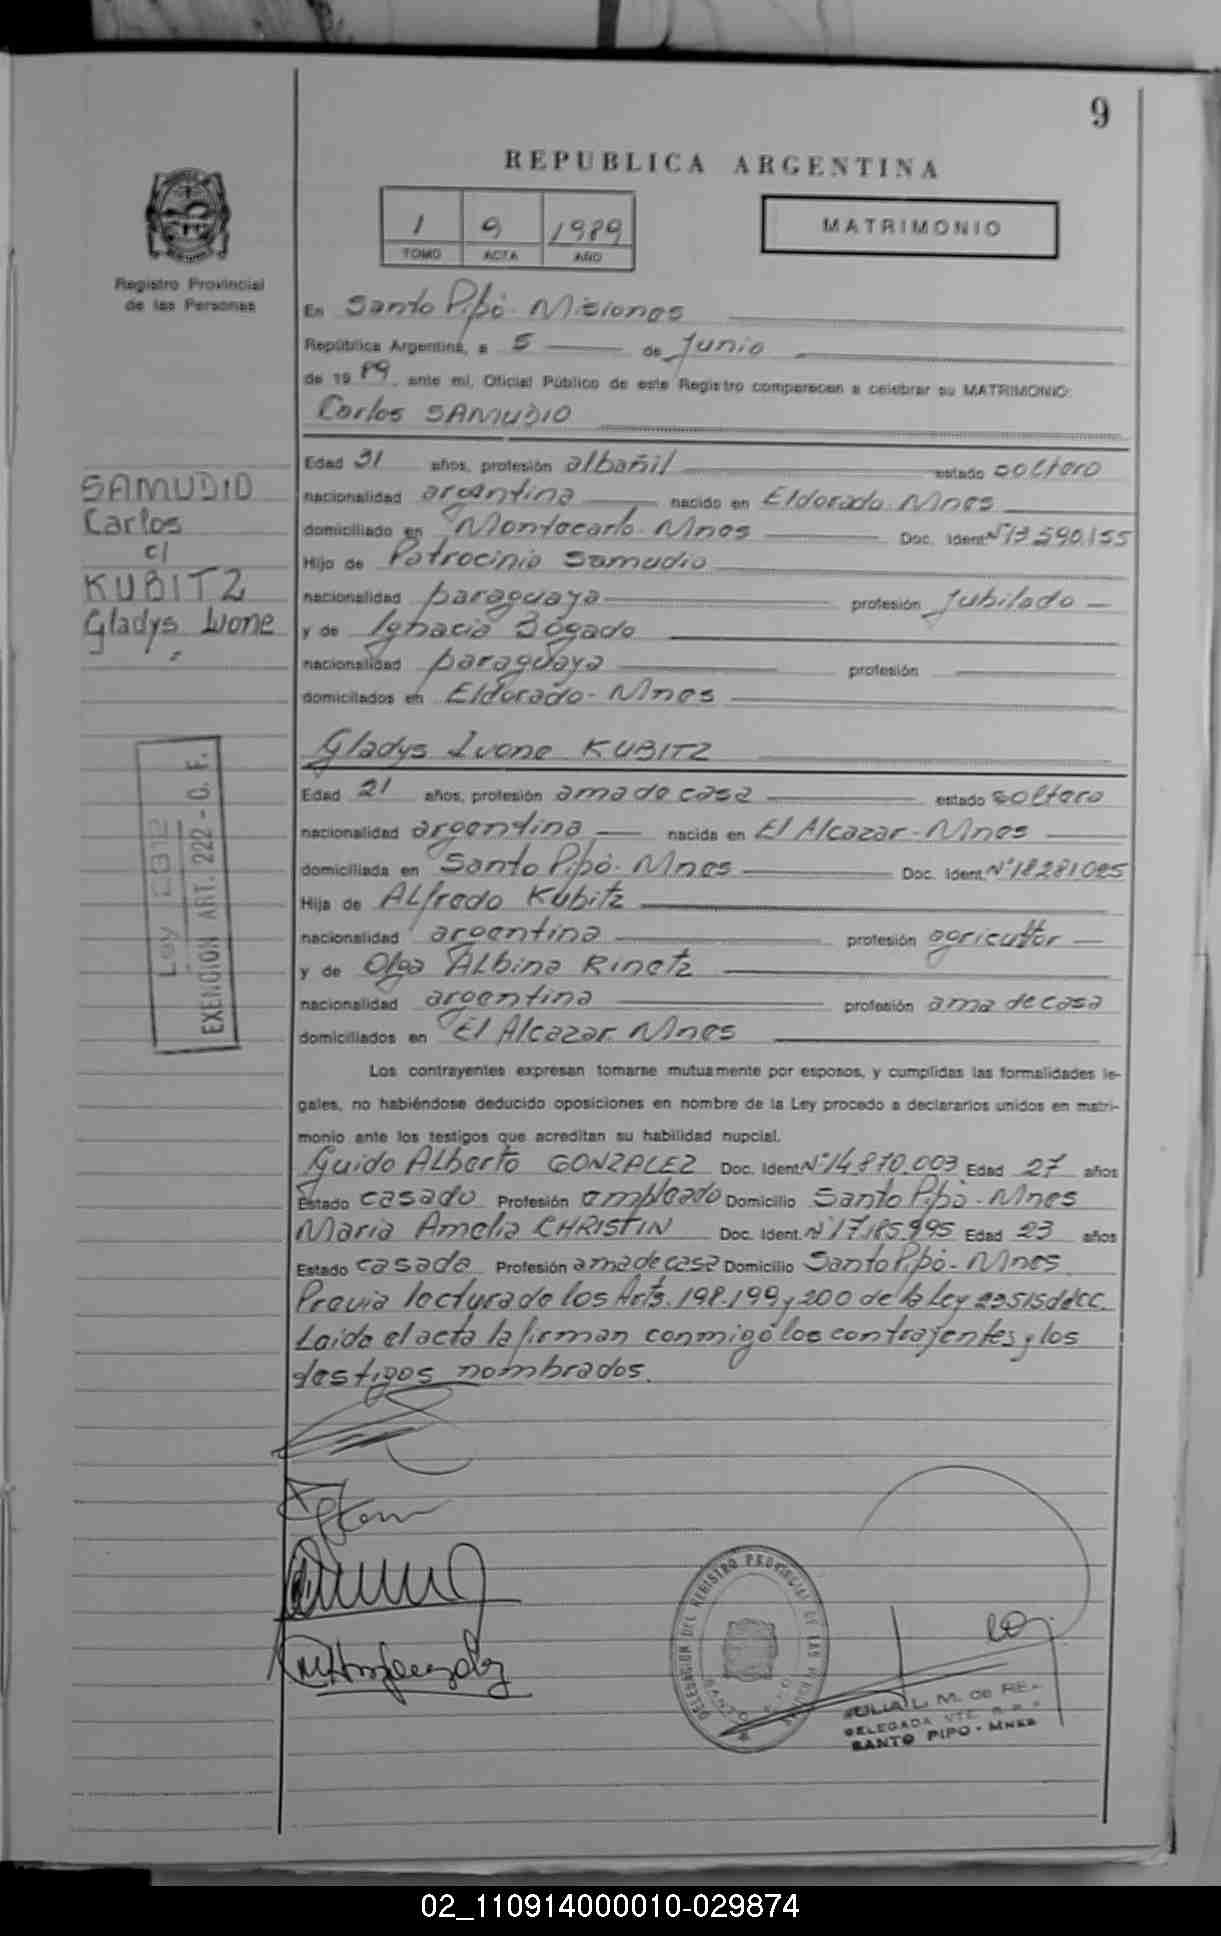 9
REPUBLICA ARGENTINA
1 9 1989
TOMO ACTA AÑO
MATRIMONIO
Registro Provincial
de las Personas
En Santo Pipó - Misiones
República Argentina, a 5 de Junio
de 1989, ante mi, Oficial Público de este Registro comparecen a celebrar su MATRIMONIO:
Carlos SAMUDIO
Edad 31 años, profesión albañil estado soltero
nacionalidad argentina nacido en Eldorado. Mnes
domiciliado en Montecarlo. Mnes Doc. Ident. Nº 13.590.155
Hijo de Patrocinio Samudio
nacionalidad paraguaya profesión Jubilado
y de Ignacia Bogado
nacionalidad paraguaya profesión
domiciliados en Eldorado - Mnes
SAMUDIO
Carlos
c/
KUBITZ
Gladys Ivone
Gladys Ivone KUBITZ
Edad 21 años, profesión ama de casa estado soltera
nacionalidad argentina nacida en El Alcazar - Mnes
domiciliada en Santo Pipó - Mnes Doc. Ident. Nº 18.281.025
Hija de Alfredo Kubitz
nacionalidad argentina profesión agricultor
y de Olga Albina Rinetz
nacionalidad argentina profesión ama de casa
domiciliados en El Alcazar. Mnes
Ley 2312
EXENCION ART. 222 - C. F.
Los contrayentes expresan tomarse mutuamente por esposos, y cumplidas las formalidades le-
gales, no habiéndose deducido oposiciones en nombre de la Ley procedo a declararlos unidos en matri-
monio ante los testigos que acreditan su habilidad nupcial.
Guido Alberto GONZALEZ Doc. Ident. Nº 14.870.003 Edad 27 años
Estado casado Profesión empleado Domicilio Santo Pipó - Mnes
Maria Amelia CHRISTIN Doc. Ident. Nº 17.185.995 Edad 23 años
Estado casada Profesión ama de casa Domicilio Santo Pipó - Mnes
Previa lectura de los Arts. 198.199 y 200 de la Ley 23515 del CC.
Leída el acta la firman conmigo los contrayentes y los
testigos nombrados.
DELEGACION DEL REGISTRO PROVINCIAL DE LAS
SANTO
JULIA L. M. de
DELEGADA
SANTO PIPO - MNES
02_110914000010-029874